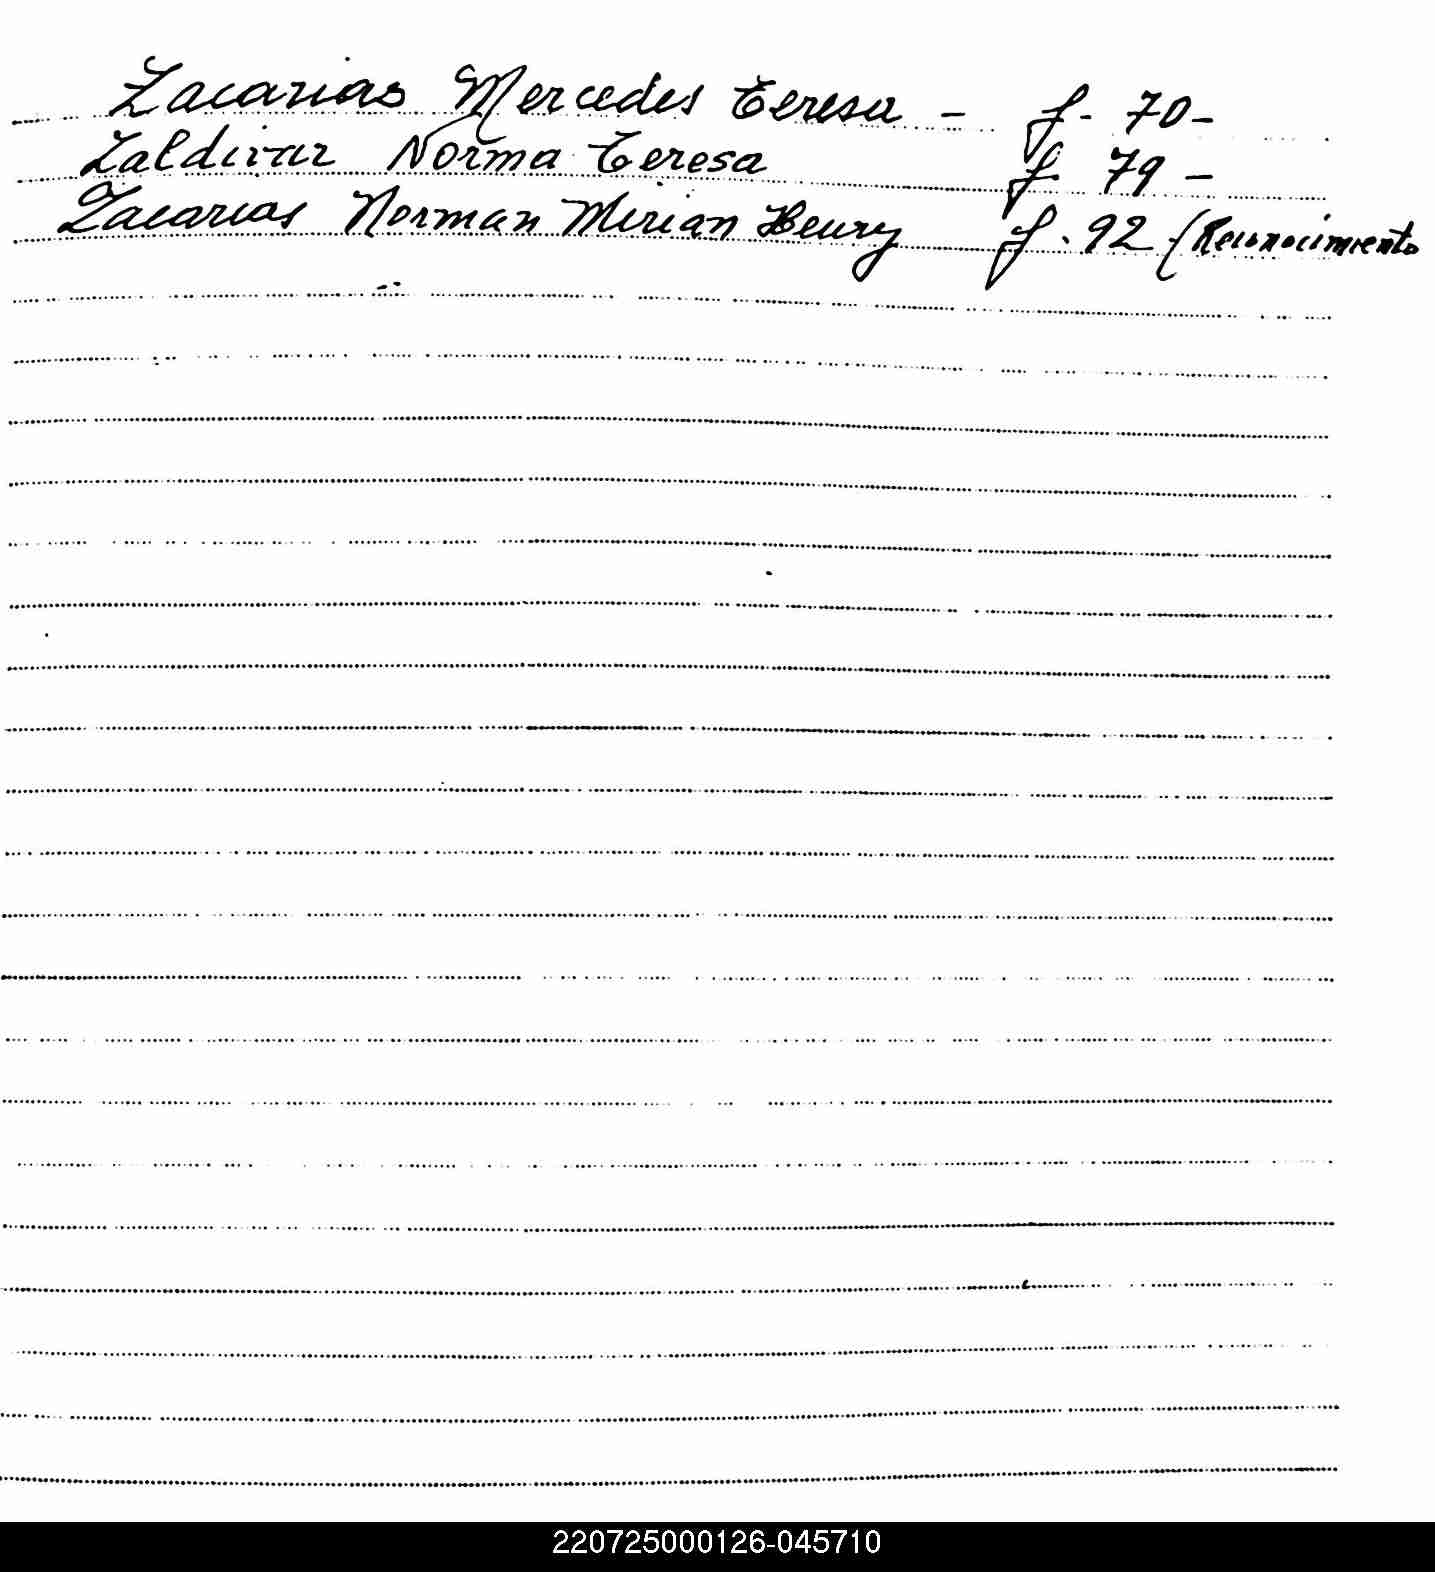 Zacarias Mercedes Teresa - f. 70-
Zaldivar Norma Teresa f. 79 -
Zacarias Norman Mirian Henry f. 92 (Reconocimiento
220725000126-045710